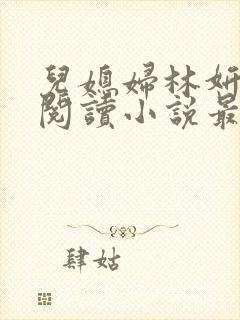 兒媳婦林妍
閱讀小說最
肆姑